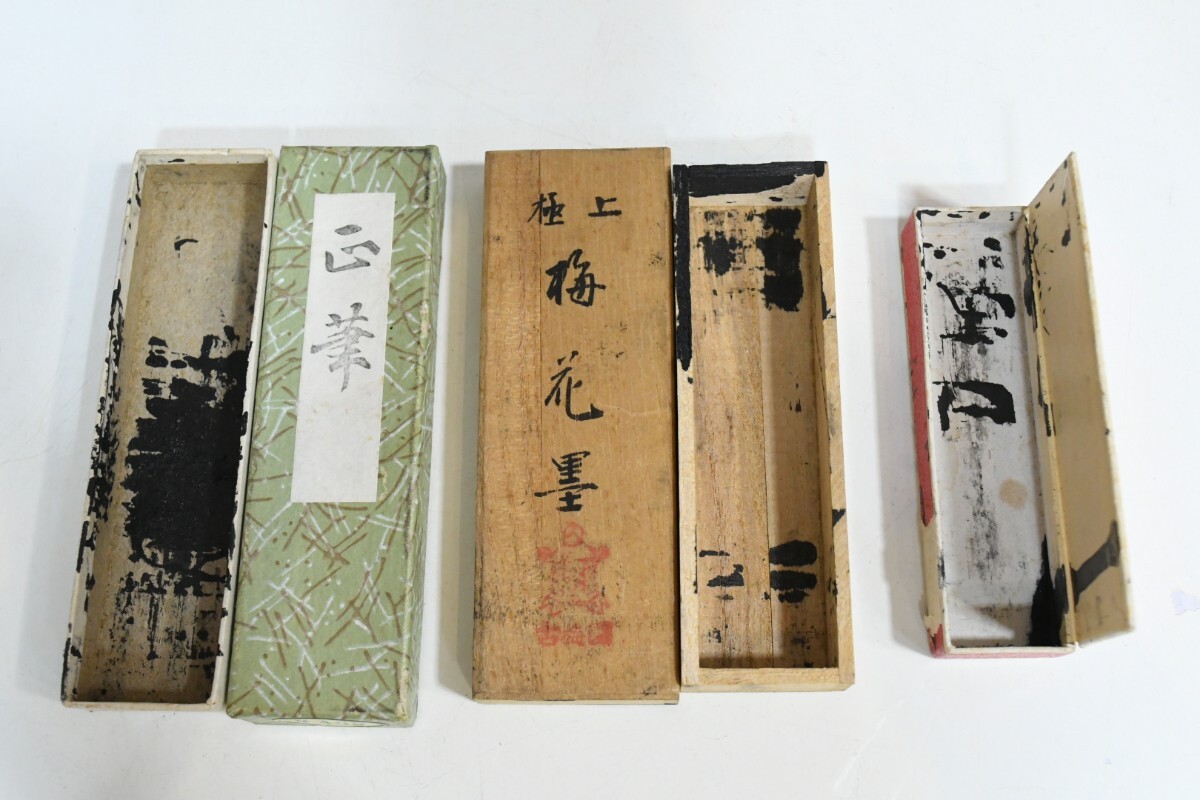 正筆
極上
梅花墨